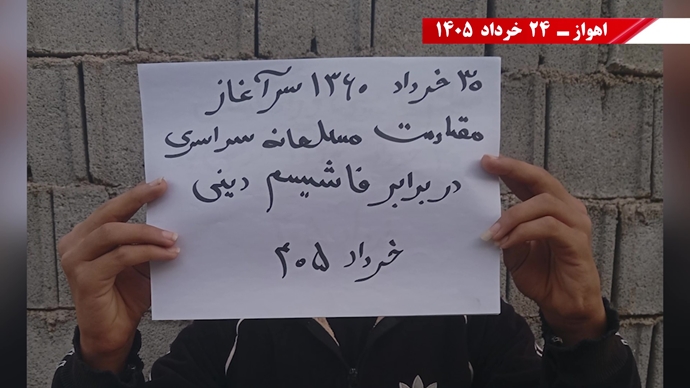 اهواز ــ ۲۴ خرداد ۱۴۰۵
۳۰ خرداد ۱۳۶۰ سرآغاز
مقاومت مسلحانه سراسری
در برابر فاشیسم دینی
خرداد ۴۰۵